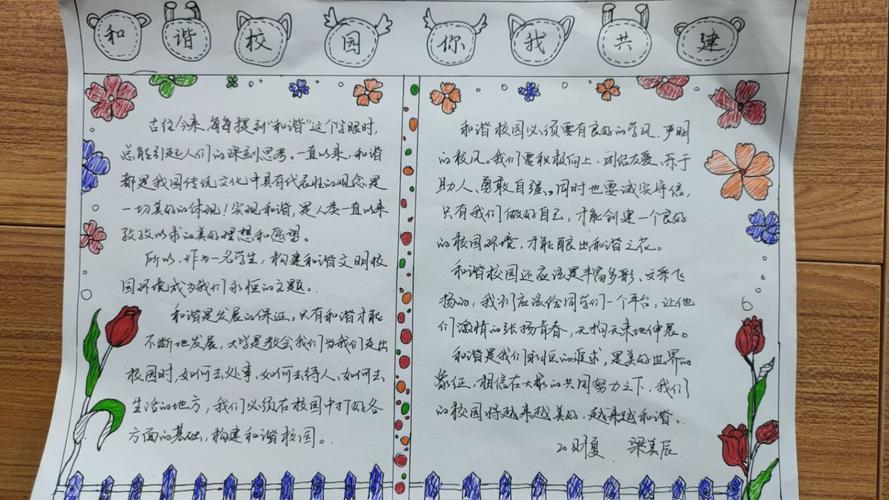 和谐校园你我共建
古往今来,每每提到“和谐”这个字眼时,
总能引起人们的深刻思考。一直以来,和谐
都是我国传统文化中具有代表性的观念,是
一切美好的体现!实现和谐,是人类一直以来
孜孜以求的美好理想和愿望。
所以,作为一名学生,构建和谐文明校
园环境成为我们永恒的主题。
和谐是发展的保证,只有和谐才能
不断地发展,大学是教会我们当我们走出
校园时,如何去处事、如何去待人、如何去
生活的地方,我们必须在校园中打好各
方面的基础,构建和谐校园。
和谐校园必须要有良好的学风,严明
的校风。我们要积极向上、团结友爱、乐于
助人、勇敢自强。同时也要诚实守信,
只有我们做好自己,才能创建一个良好
的校园环境,才能展出和谐之花。
和谐校园还应该是丰富多彩、文采飞
扬的,我们应该给同学们一个平台,让他
们激情的张扬青春,无拘无束地伸展。
和谐是我们永恒的追求,是美好世界的
象征,相信在大家的共同努力之下,我们
的校园将越来越美好,越来越和谐。
梁美辰